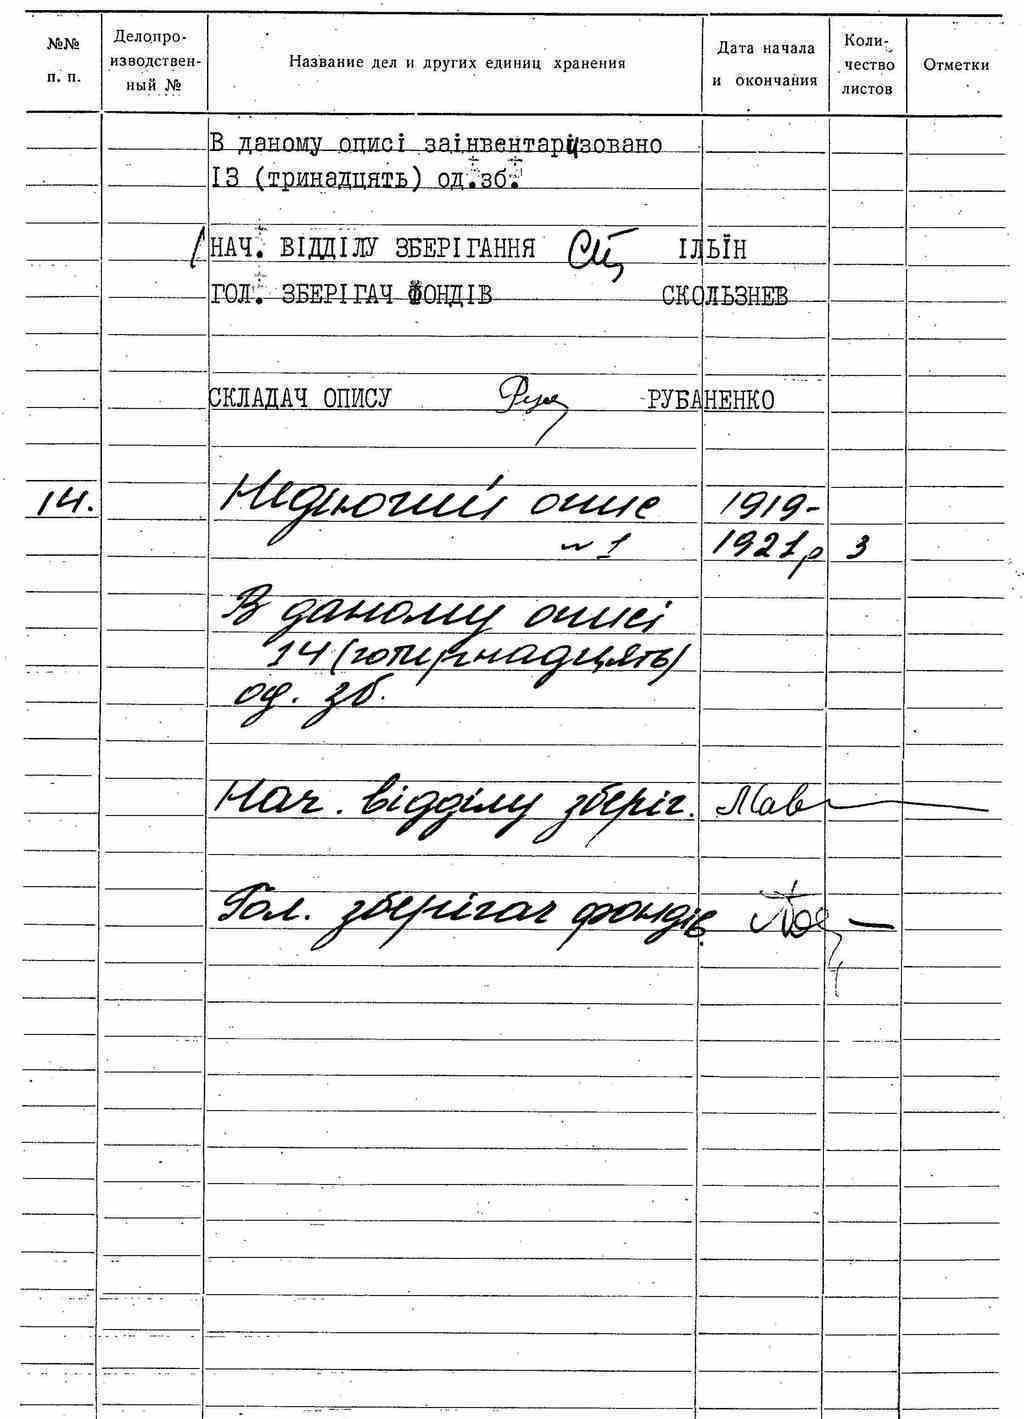 №№ п. п.
Делопро-
изводствен-
ный №
Название дел и других единиц хранения
Дата начала
и окончания
Коли-
чество
листов
Отметки
В даному описі заінвентаризовано
ІЗ (тринадцять) од.зб.
НАЧ. ВІДДІЛУ ЗБЕРІГАННЯ ІЛЬЇН
ГОЛ. ЗБЕРІГАЧ ФОНДІВ СКОЛЬЗНЕВ
СКЛАДАЧ ОПИСУ РУБАНЕНКО
14. Недіючий опис 1919-
№1 1921р 3
В даному описі
14 (чотирнадцять)
од. зб.
Нач. відділу зберіг.
Гол. зберігач фондів